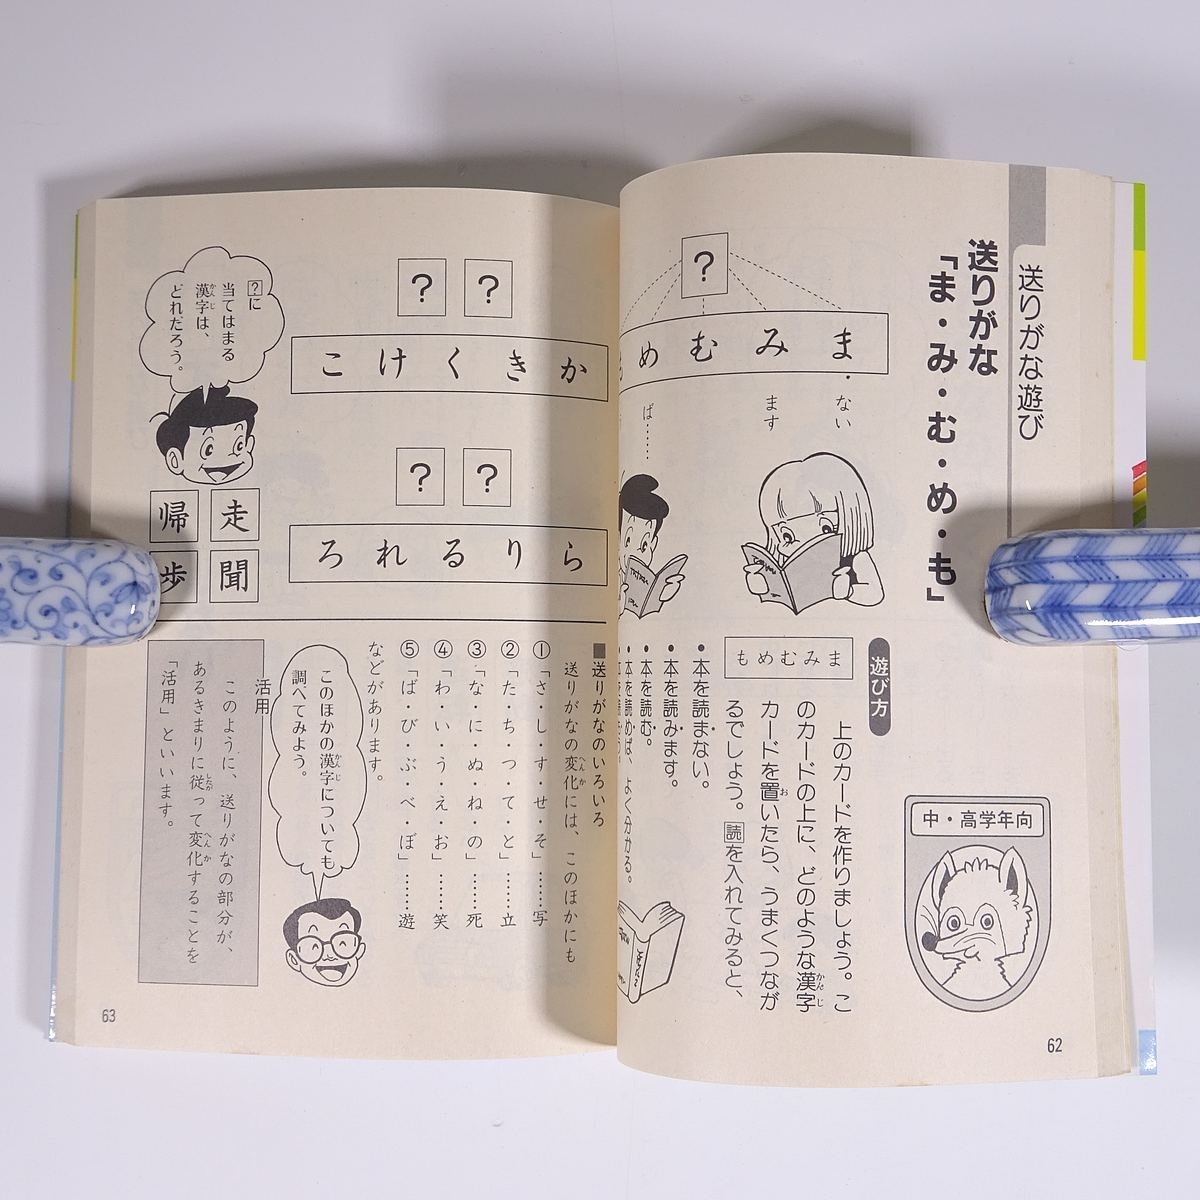 送りがな遊び
送りがな
「ま・み・む・め・も」
中・高学年向
？
まみむめ
ない
ます
ば……
遊び方
まみむめも
上のカードを作りましょう。こ
のカードの上に、どのような漢字
カードを置いたら、うまくつなが
るでしょう。読を入れてみると、
・本を読まない。
・本を読みます。
・本を読む。
・本を読めば、よく分かる。
62
？？
かきくけこ
？？
らりるれろ
？に
当てはまる
漢字は、
どれだろう。
走帰
聞歩
■送りがなのいろいろ
送りがなの変化には、このほかにも
①「さ・し・す・せ・そ」……写
②「た・ち・つ・て・と」……立
③「な・に・ぬ・ね・の」……死
④「わ・い・う・え・お」……笑
⑤「ば・び・ぶ・べ・ぼ」……遊
などがあります。
このほかの漢字についても
調べてみよう。
活用
このように、送りがなの部分が、
あるきまりに従って変化することを
「活用」といいます。
63